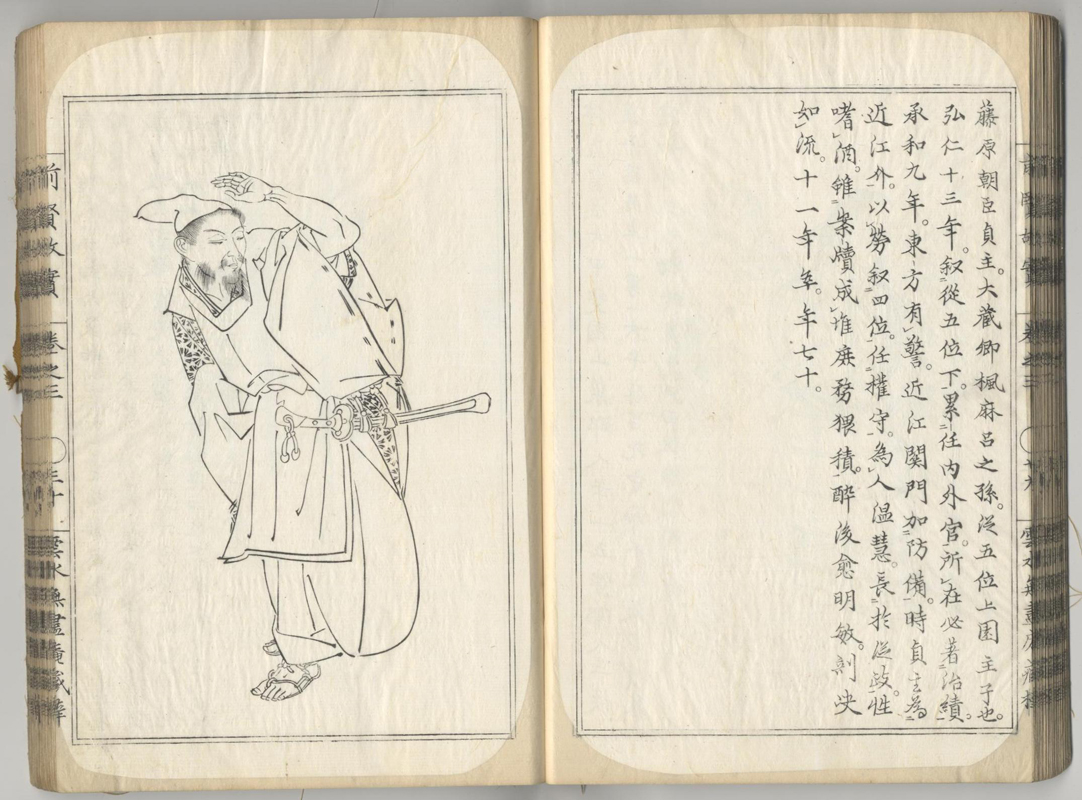 藤原朝臣貞主。大蔵卿楓麻呂之孫。従五位上園主子也。
弘仁十三年。叙從五位下。累任内外官。所在必著治績。
承和九年。東方有警。近江関門加防備。時貞主為
近江介。以労叙四位。任権守。為人温慧。長於従政。性
嗜酒。雖案牘成堆庶務猥積。酔後愈明敏。剖决
如流。十一年卒。年七十。
前賢故實
卷之三
三十
雲水無盡庵藏梓